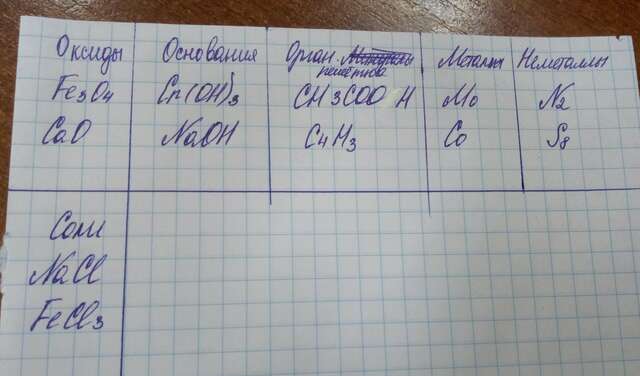 Оксиды Основания Орган. Металлы Неметаллы
Fe3O4 Cr(OH)3 CH3COOH Mo N2
CaO NaOH C4H3 Co S8
Соли
NaCl
FeCl3